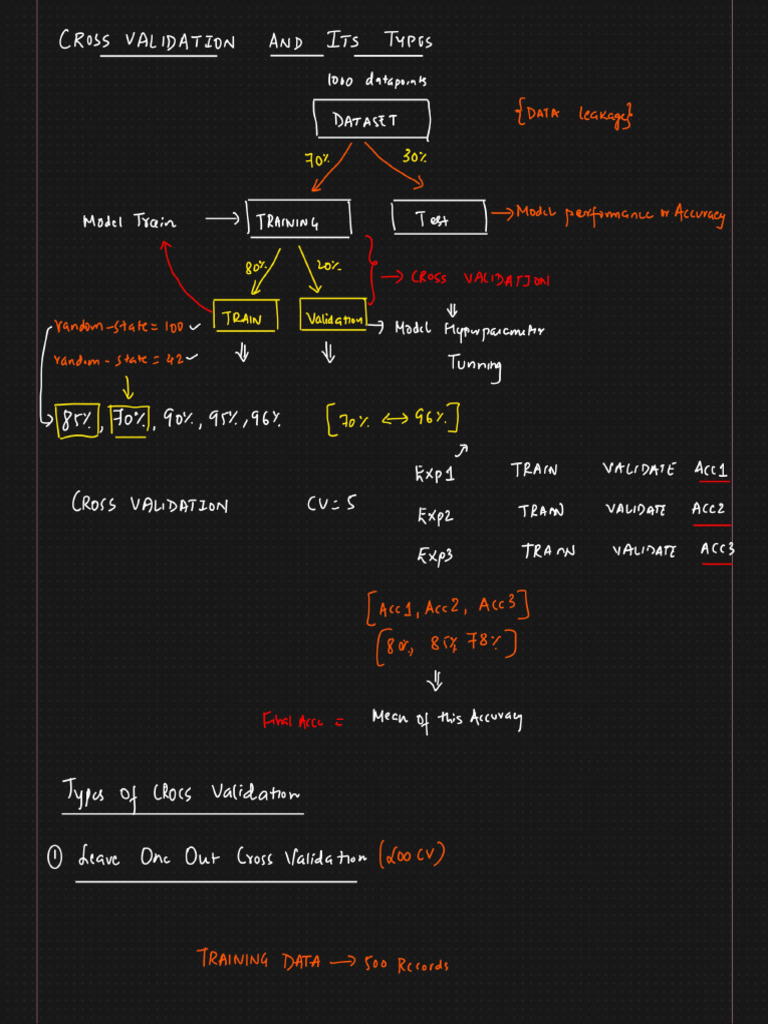 CROSS VALIDATION AND ITS TYPES
1000 datapoints
DATASET
{DATA leakage}
70% 30%
Model Train → TRAINING Test → Model performance or Accuracy
80% 20%
→ CROSS VALIDATION
TRAIN Validation → Model Hyperparameter
Tunning
random-state = 100 ✓
random-state = 42 ✓
85%, 70%, 90%, 95%, 96% [70% ↔ 96%]
CROSS VALIDATION CV = 5
Exp1 TRAIN VALIDATE Acc1
Exp2 TRAIN VALIDATE Acc2
Exp3 TRAIN VALIDATE Acc3
[Acc1, Acc2, Acc3]
[80%, 85% 78%]
Final Acc = Mean of this Accuracy
Types of CROCS Validation
① Leave One Out Cross Validation (LOO CV)
TRAINING DATA → 500 Records